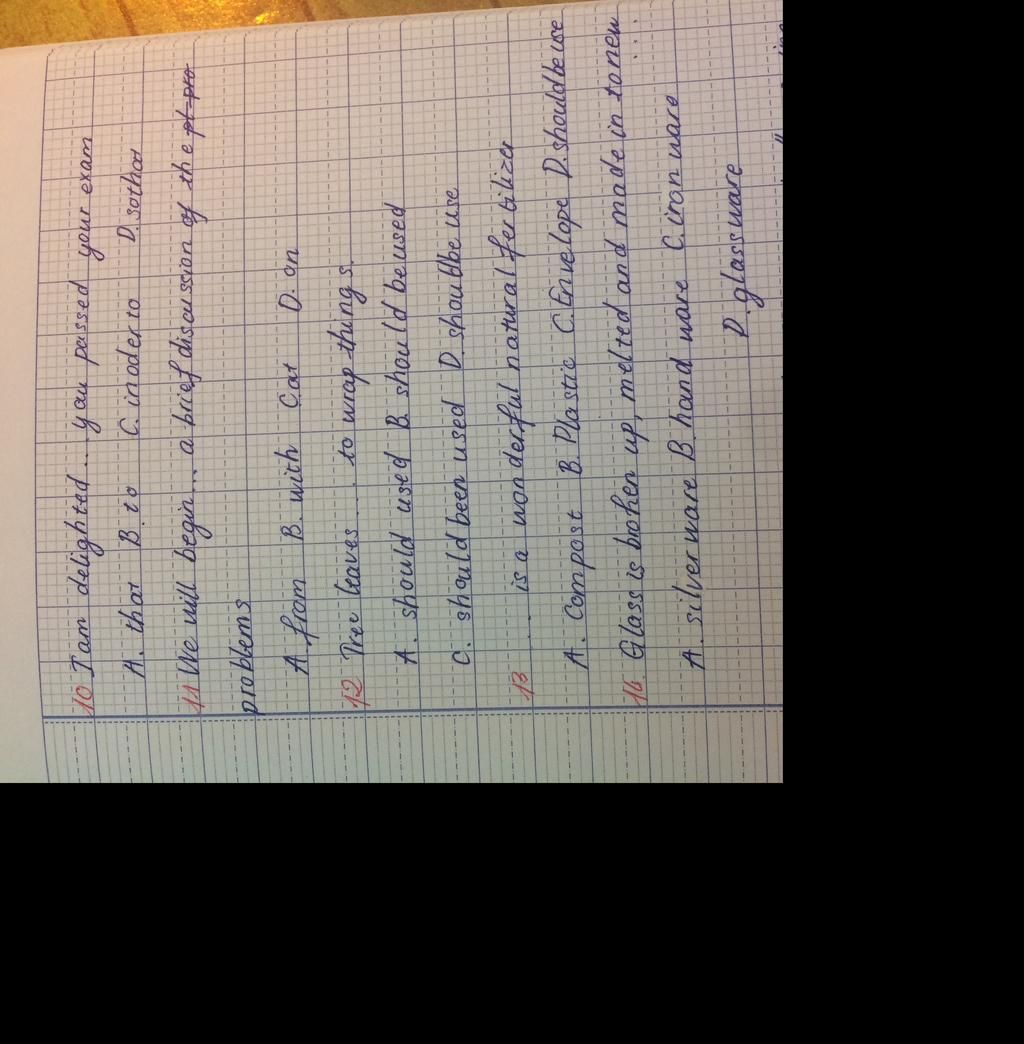 10 I am delighted... you passed your exam
A. that B. to C. inoder to D. sothat
11 We will begin... a brief discussion of the
problems
A. from B. with C at D. on
12 Tree leaves ... to wrap things.
A. should used B. should be used
C. should been used D. should be use
13 ... is a wonderful natural fertilizer
A. Compost B. Plastic C. Envelope D. should be use
14. Glass is broken up, melted and made in to new ...
A. silverware B. hand ware C. iron ware
D. glassware